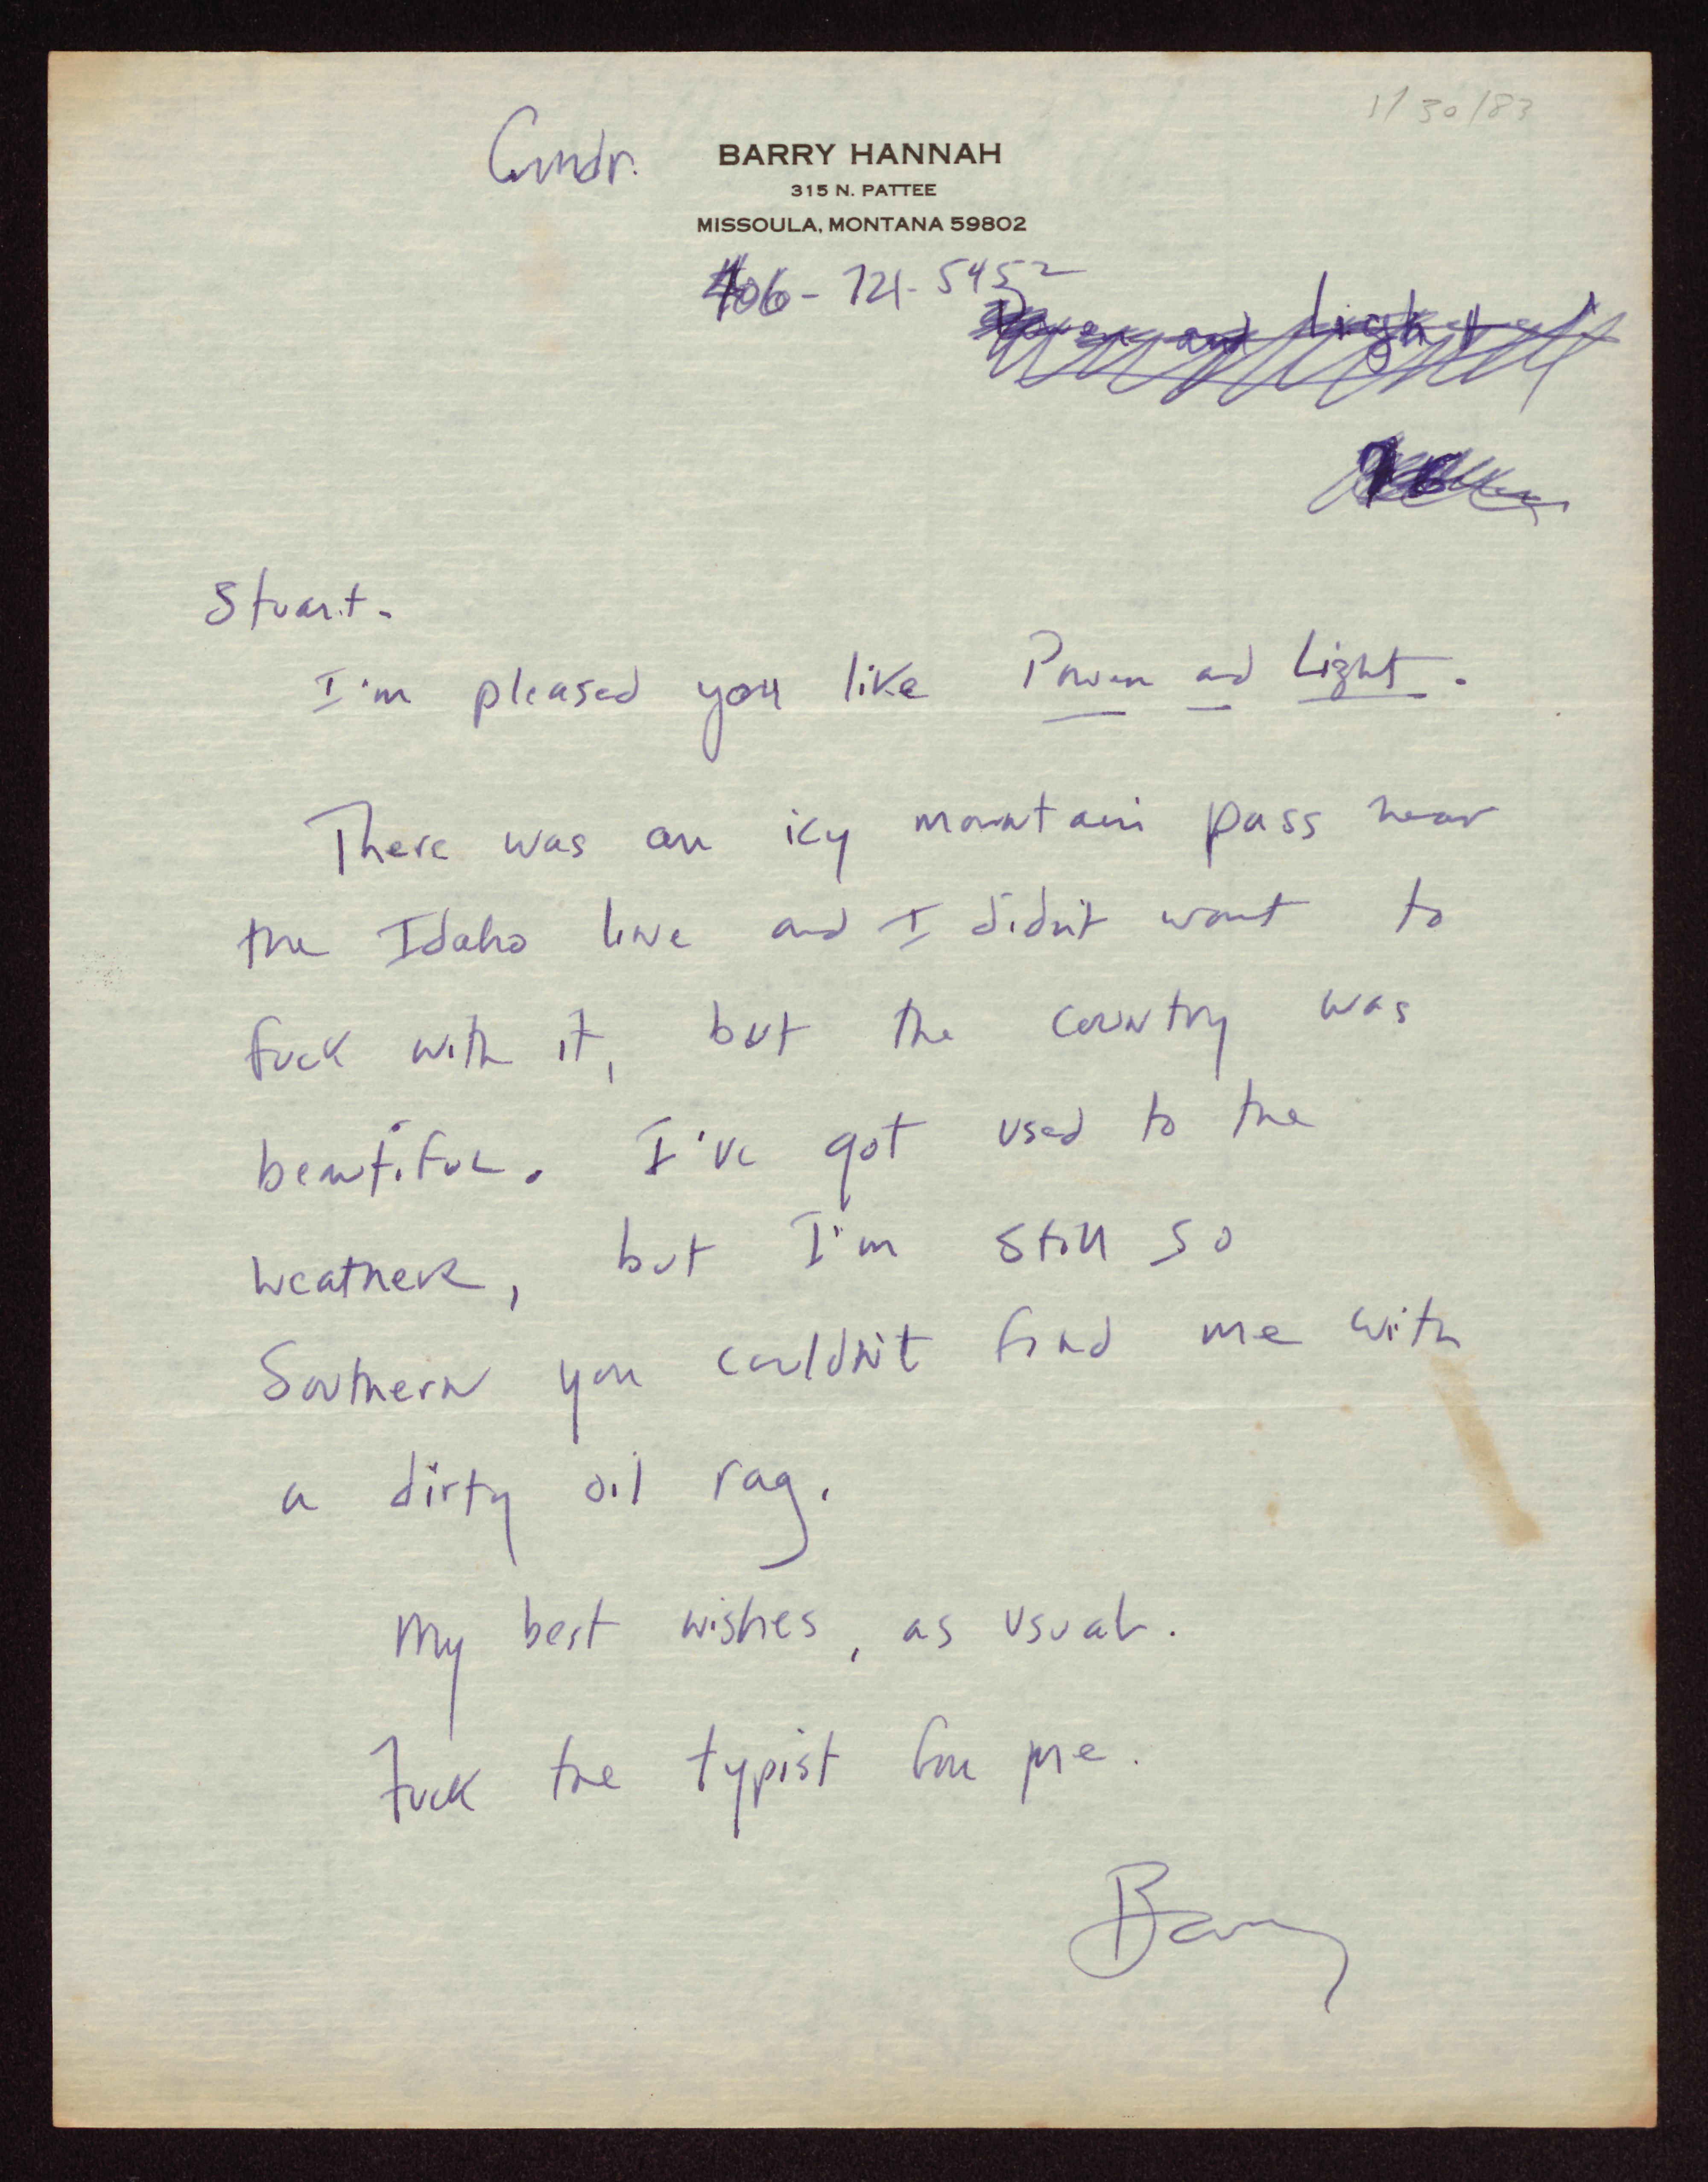 1/30/83
Cmdr. BARRY HANNAH
315 N. PATTEE
MISSOULA, MONTANA 59802
406-721-5452
Power and Light
Stuart.
I'm pleased you like Power and Light.
There was an icy mountain pass near
the Idaho line and I didn't want to
fuck with it, but the country was
beautiful. I've got used to the
weather, but I'm still so
Southern you couldn't find me with
a dirty oil rag.
My best wishes, as usual.
Fuck the typist for me.
Barry